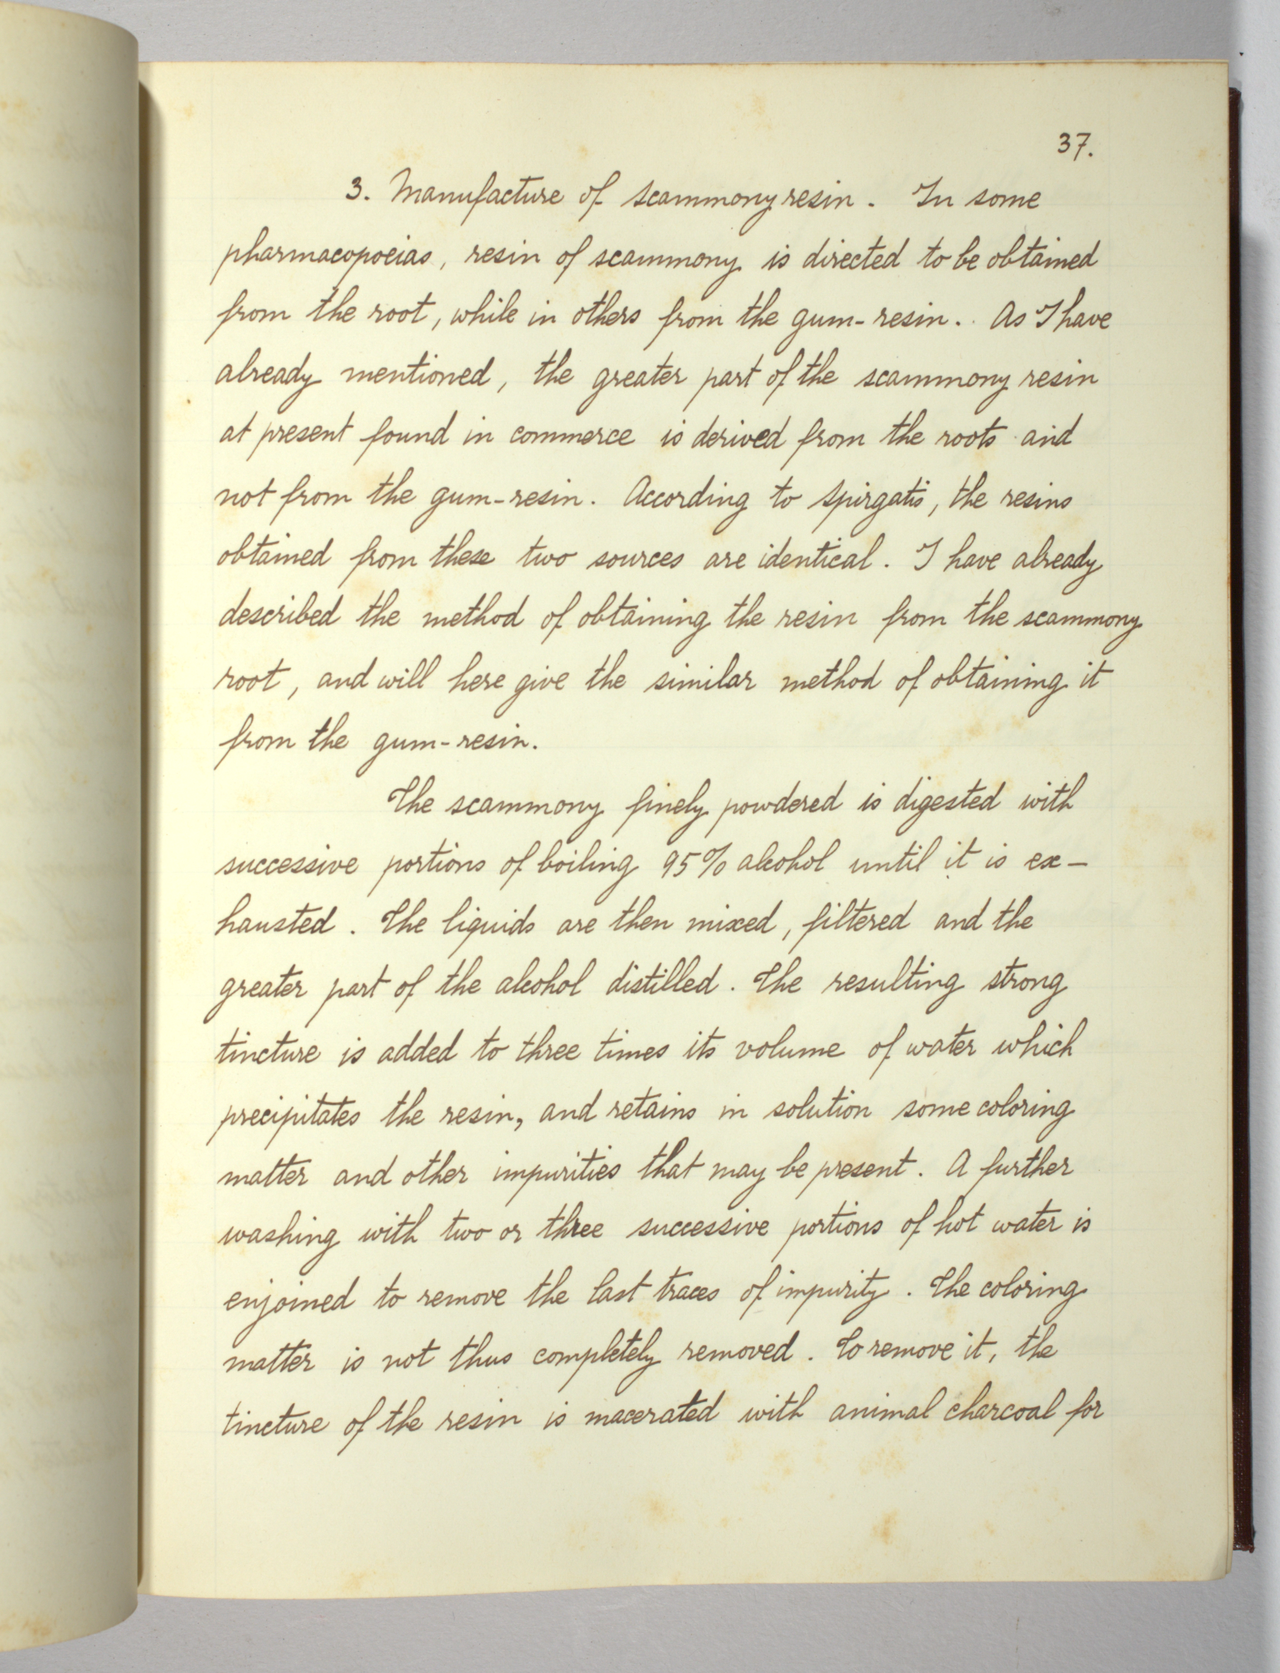 37.
3. Manufacture of scammony resin. In some
pharmacopoeias, resin of scammony is directed to be obtained
from the root, while in others from the gum-resin. As I have
already mentioned, the greater part of the scammony resin
at present found in commerce is derived from the roots and
not from the gum-resin. According to Spirgatis, the resins
obtained from these two sources are identical. I have already
described the method of obtaining the resin from the scammony
root, and will here give the similar method of obtaining it
from the gum-resin.
The scammony finely powdered is digested with
successive portions of boiling 95% alcohol until it is ex-
hausted. The liquids are then mixed, filtered and the
greater part of the alcohol distilled. The resulting strong
tincture is added to three times its volume of water which
precipitates the resin, and retains in solution some coloring
matter and other impurities that may be present. A further
washing with two or three successive portions of hot water is
enjoined to remove the last traces of impurity. The coloring
matter is not thus completely removed. To remove it, the
tincture of the resin is macerated with animal charcoal for